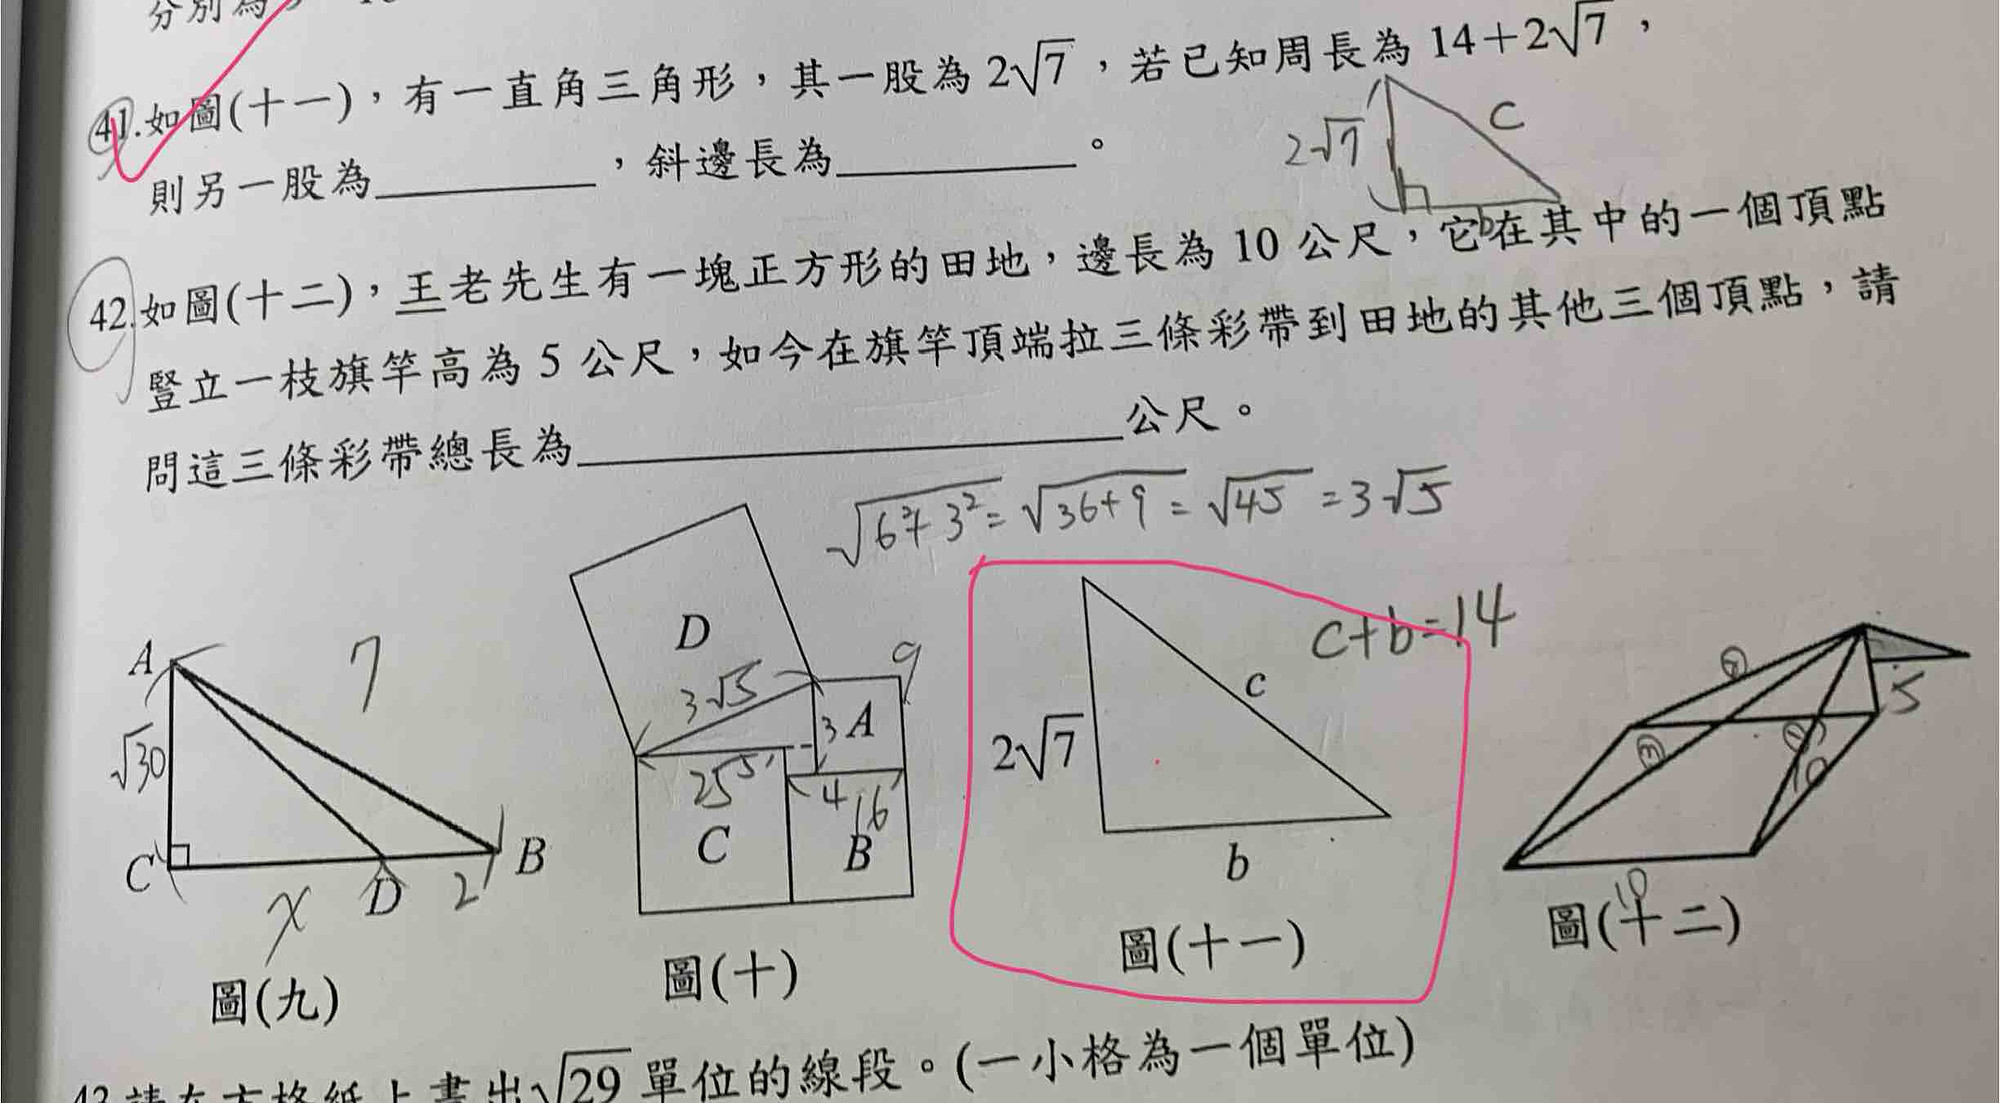 分別為
41.如圖(十一)，有一直角三角形，其一股為2√7，若已知周長為14+2√7，
則另一股為__________，斜邊長為__________。
2√7
c
b
42.如圖(十二)，王老先生有一塊正方形的田地，邊長為10公尺，它在其中的一個頂點
豎立一枝旗竿高為5公尺，如今在旗竿頂端拉三條彩帶到田地的其他三個頂點，請
問這三條彩帶總長為____________________公尺。
√6²+3²=√36+9=√45=3√5
A
7
√30
C
x
D
2
B
圖(九)
D
3√5
9
3
A
25
5
4
16
C
B
圖(十)
c+b=14
2√7
c
b
圖(十一)
5
10
10
圖(十二)
43.請在方格紙上畫出√29單位的線段。(一小格為一個單位)